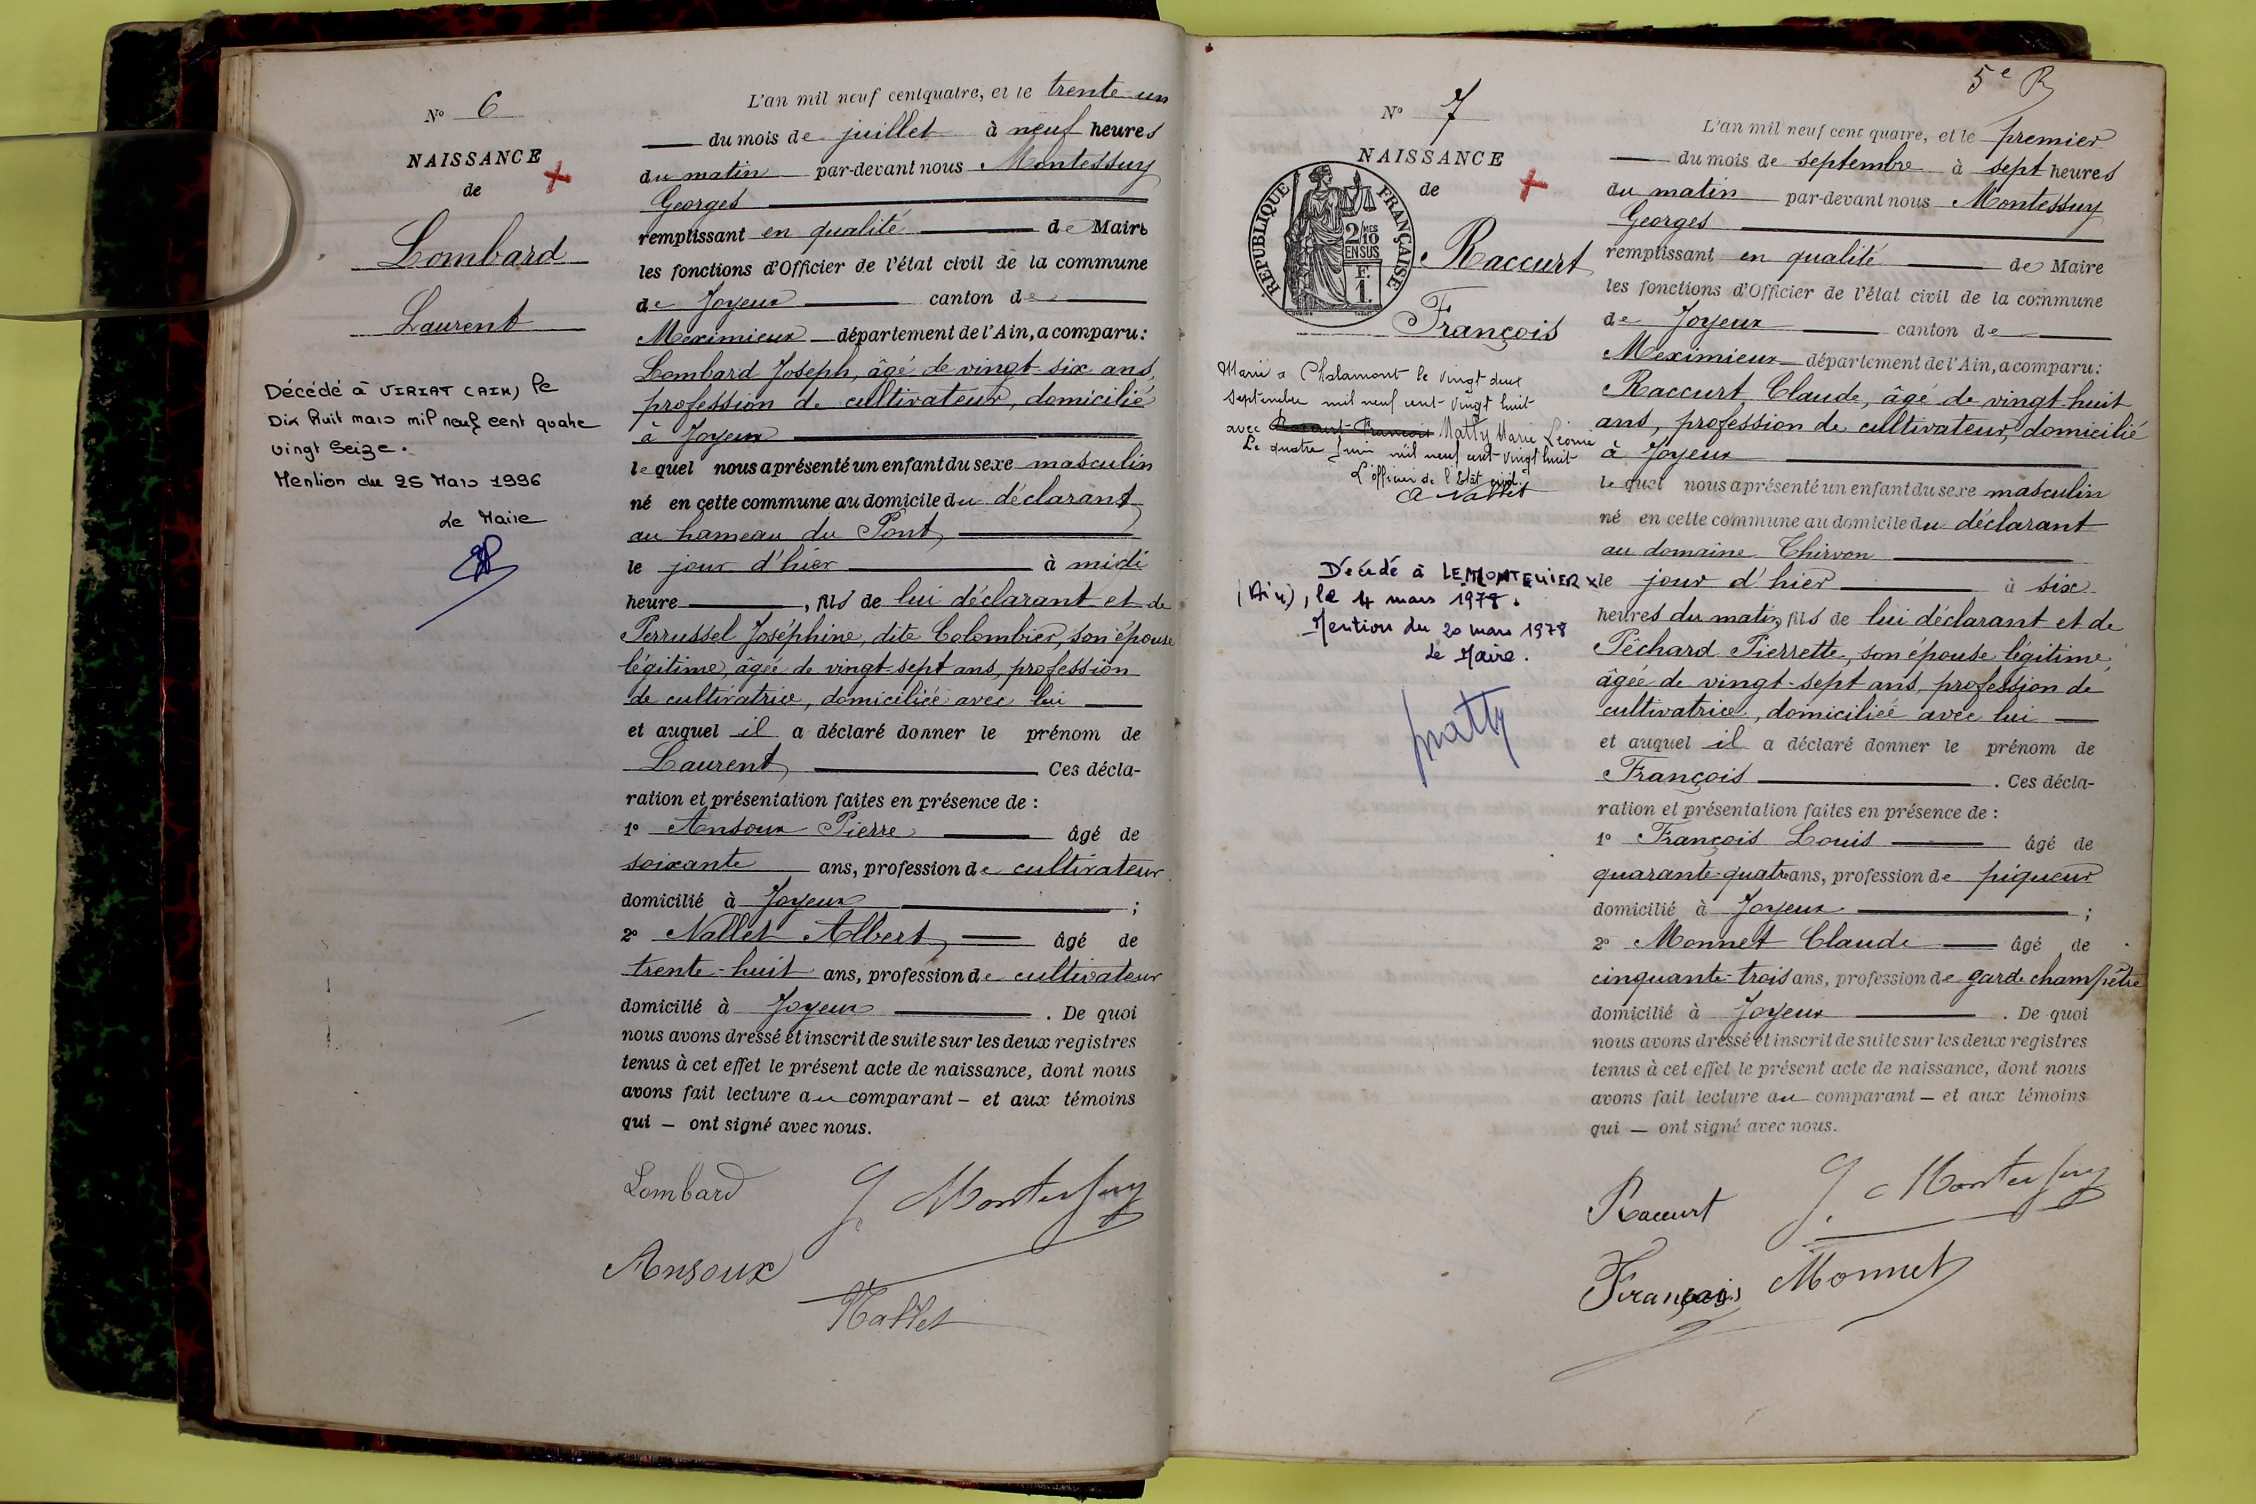 N° 6
NAISSANCE
de
Lombard
Laurent
Décédé à VIRIAT (AIN) le
Dix huit mars mil neuf cent quatre
vingt seize.
Mention du 25 Mars 1996
Le Maire
L'an mil neuf cent quatre, et le trente-un
du mois de juillet à neuf heures
du matin par-devant nous Montessuy
Georges
remplissant en qualité de Maire
les fonctions d'Officier de l'état civil de la commune
de Joyeux canton de
Meximieux département de l'Ain, a comparu:
Lombard Joseph, âgé de vingt-six ans,
profession de cultivateur, domicilié
à Joyeux
lequel nous a présenté un enfant du sexe masculin
né en cette commune au domicile du déclarant
au hameau du Pont,
le jour d'hier à midi
heure , fils de lui déclarant et de
Perrussel Joséphine, dite Colombier, son épouse
légitime, âgée de vingt-sept ans, profession
de cultivatrice, domiciliée avec lui
et auquel il a déclaré donner le prénom de
Laurent Ces décla-
ration et présentation faites en présence de :
1° Ansoux Pierre âgé de
soixante ans, profession de cultivateur
domicilié à Joyeux ;
2° Nallet Albert, âgé de
trente-huit ans, profession de cultivateur
domicilié à Joyeux . De quoi
nous avons dressé et inscrit de suite sur les deux registres
tenus à cet effet le présent acte de naissance, dont nous
avons fait lecture au comparant – et aux témoins
qui – ont signé avec nous.
Lombard G. Montessuy
Ansoux
Nallet
5e R
N° 7
NAISSANCE
de
RÉPUBLIQUE FRANÇAISE
2/10 MES
EN SUS
F.
1.
Raccurt
François
Marié à Chalamont le vingt deux
Septembre mil neuf cent vingt huit
avec Raccurt François Matty Marie Léonie
Le quatre juin mil neuf cent vingt huit
L'officier de l'Etat civil.
A Nallet
Décédé à LE MONTELLIER
(Ain), le 4 mars 1978.
Mention du 20 mars 1978
Le Maire.
Matty
L'an mil neuf cent quatre, et le premier
du mois de septembre à sept heures
du matin par-devant nous Montessuy
Georges
remplissant en qualité de Maire
les fonctions d'Officier de l'état civil de la commune
de Joyeux canton de
Meximieux département de l'Ain, a comparu:
Raccurt Claude, âgé de vingt huit
ans, profession de cultivateur, domicilié
à Joyeux
lequel nous a présenté un enfant du sexe masculin
né en cette commune au domicile du déclarant
au domaine Thirvon
le jour d'hier à six
heures du matin, fils de lui déclarant et de
Péchard Pierrette, son épouse légitime,
âgée de vingt-sept ans, profession de
cultivatrice, domiciliée avec lui
et auquel il a déclaré donner le prénom de
François . Ces décla-
ration et présentation faites en présence de :
1° François Louis âgé de
quarante-quatre ans, profession de piqueur
domicilié à Joyeux ;
2° Monnet Claude âgé de
cinquante-trois ans, profession de garde champêtre
domicilié à Joyeux . De quoi
nous avons dressé et inscrit de suite sur les deux registres
tenus à cet effet le présent acte de naissance, dont nous
avons fait lecture au comparant – et aux témoins
qui – ont signé avec nous.
Raccurt G. Montessuy
François Monnet